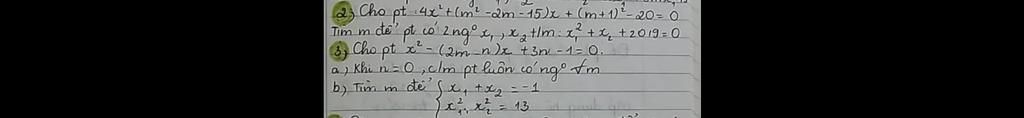 2) Cho pt : 4x² + (m² - 2m - 15)x + (m+1)² - 20 = 0
Tìm m để pt có 2 ngº x₁, x₂ t/m : x₁² + x₂ + 2019 = 0
3) Cho pt x² - (2m - n)x + 3n - 1 = 0.
a) Khi n = 0, c/m pt luôn có ngº ∀m
b) Tìm m để { x₁ + x₂ = -1
x₁², x₂² = 13